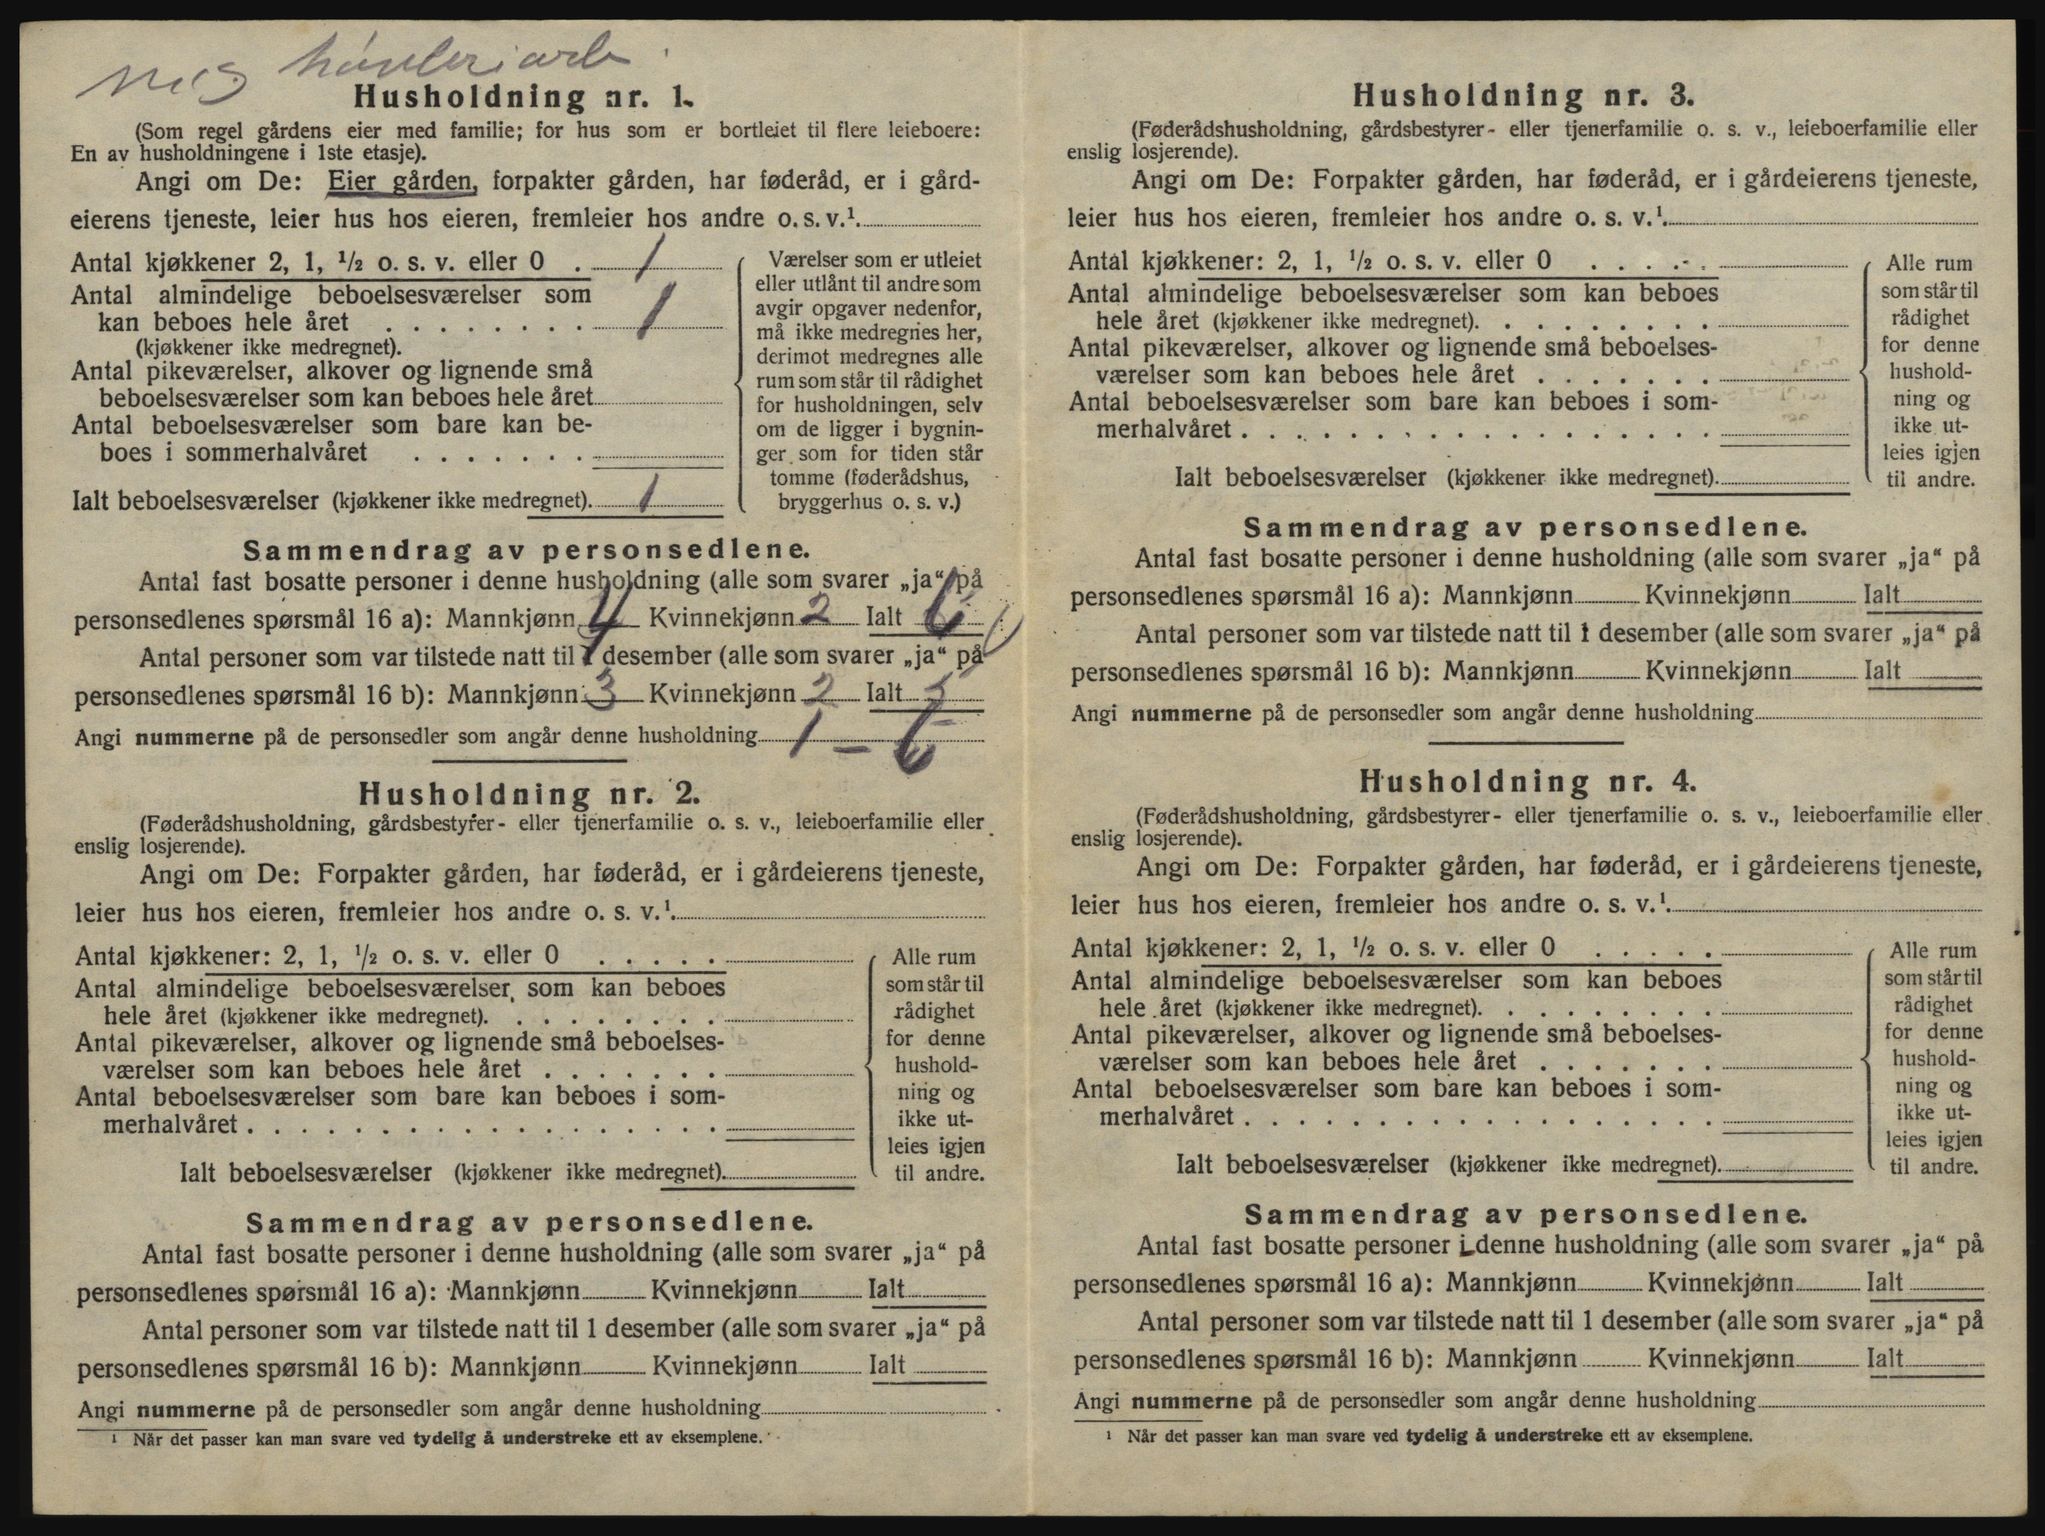 høvleriarb.
Husholdning nr. 1.
(Som regel gårdens eier med familie; for hus som er bortleiet til flere leieboere:
En av husholdningene i 1ste etasje).
Angi om De: Eier gården, forpakter gården, har føderåd, er i gård-
eierens tjeneste, leier hus hos eieren, fremleier hos andre o. s. v.¹.
Antal kjøkkener 2, 1, ½ o. s. v. eller 0 . 1
Antal almindelige beboelsesværelser som
kan beboes hele året . . . . . . . . 1
(kjøkkener ikke medregnet).
Antal pikeværelser, alkover og lignende små
beboelsesværelser som kan beboes hele året
Antal beboelsesværelser som bare kan be-
boes i sommerhalvåret . . . . . . .
Ialt beboelsesværelser (kjøkkener ikke medregnet). 1
Værelser som er utleiet
eller utlånt til andre som
avgir opgaver nedenfor,
må ikke medregnes her,
derimot medregnes alle
rum som står til rådighet
for husholdningen, selv
om de ligger i bygnin-
ger som for tiden står
tomme (føderådshus,
bryggerhus o. s. v.)
Sammendrag av personsedlene.
Antal fast bosatte personer i denne husholdning (alle som svarer „ja“ på
personsedlenes spørsmål 16 a): Mannkjønn 4 Kvinnekjønn 2 Ialt 6
Antal personer som var tilstede natt til 1 desember (alle som svarer „ja“ på
personsedlenes spørsmål 16 b): Mannkjønn 3 Kvinnekjønn 2 Ialt 5
Angi nummerne på de personsedler som angår denne husholdning 1 – 6
Husholdning nr. 2.
(Føderådshusholdning, gårdsbestyrer- eller tjenerfamilie o. s. v., leieboerfamilie eller
enslig losjerende).
Angi om De: Forpakter gården, har føderåd, er i gårdeierens tjeneste,
leier hus hos eieren, fremleier hos andre o. s. v.¹.
Antal kjøkkener: 2, 1, ½ o. s. v. eller 0 . . . . .
Antal almindelige beboelsesværelser som kan beboes
hele året (kjøkkener ikke medregnet). . . . . . . . .
Antal pikeværelser, alkover og lignende små beboelses-
værelser som kan beboes hele året . . . . . . .
Antal beboelsesværelser som bare kan beboes i som-
merhalvåret . . . . . . . . . . . . . . . . . .
Ialt beboelsesværelser (kjøkkener ikke medregnet).
Alle rum
som står til
rådighet
for denne
hushold-
ning og
ikke ut-
leies igjen
til andre.
Sammendrag av personsedlene.
Antal fast bosatte personer i denne husholdning (alle som svarer „ja“ på
personsedlenes spørsmål 16 a): Mannkjønn Kvinnekjønn Ialt
Antal personer som var tilstede natt til 1 desember (alle som svarer „ja“ på
personsedlenes spørsmål 16 b): Mannkjønn Kvinnekjønn Ialt
Angi nummerne på de personsedler som angår denne husholdning
¹ Når det passer kan man svare ved tydelig å understreke ett av eksemplene.
Husholdning nr. 3.
(Føderådshusholdning, gårdsbestyrer- eller tjenerfamilie o. s. v., leieboerfamilie eller
enslig losjerende).
Angi om De: Forpakter gården, har føderåd, er i gårdeierens tjeneste,
leier hus hos eieren, fremleier hos andre o. s. v.¹.
Antal kjøkkener: 2, 1, ½ o. s. v. eller 0 . . . . .
Antal almindelige beboelsesværelser som kan beboes
hele året (kjøkkener ikke medregnet). . . . . . . . .
Antal pikeværelser, alkover og lignende små beboelses-
værelser som kan beboes hele året . . . . . . .
Antal beboelsesværelser som bare kan beboes i som-
merhalvåret . . . . . . . . . . . . . . . . . .
Ialt beboelsesværelser (kjøkkener ikke medregnet).
Alle rum
som står til
rådighet
for denne
hushold-
ning og
ikke ut-
leies igjen
til andre.
Sammendrag av personsedlene.
Antal fast bosatte personer i denne husholdning (alle som svarer „ja“ på
personsedlenes spørsmål 16 a): Mannkjønn Kvinnekjønn Ialt
Antal personer som var tilstede natt til 1 desember (alle som svarer „ja“ på
personsedlenes spørsmål 16 b): Mannkjønn Kvinnekjønn Ialt
Angi nummerne på de personsedler som angår denne husholdning
Husholdning nr. 4.
(Føderådshusholdning, gårdsbestyrer- eller tjenerfamilie o. s. v., leieboerfamilie eller
enslig losjerende).
Angi om De: Forpakter gården, har føderåd, er i gårdeierens tjeneste,
leier hus hos eieren, fremleier hos andre o. s. v.¹.
Antal kjøkkener: 2, 1, ½ o. s. v. eller 0 . . . . .
Antal almindelige beboelsesværelser som kan beboes
hele året (kjøkkener ikke medregnet). . . . . . . . .
Antal pikeværelser, alkover og lignende små beboelses-
værelser som kan beboes hele året . . . . . . .
Antal beboelsesværelser som bare kan beboes i som-
merhalvåret . . . . . . . . . . . . . . . . . .
Ialt beboelsesværelser (kjøkkener ikke medregnet).
Alle rum
som står til
rådighet
for denne
hushold-
ning og
ikke ut-
leies igjen
til andre.
Sammendrag av personsedlene.
Antal fast bosatte personer i denne husholdning (alle som svarer „ja“ på
personsedlenes spørsmål 16 a): Mannkjønn Kvinnekjønn Ialt
Antal personer som var tilstede natt til 1 desember (alle som svarer „ja“ på
personsedlenes spørsmål 16 b): Mannkjønn Kvinnekjønn Ialt
Angi nummerne på de personsedler som angår denne husholdning
¹ Når det passer kan man svare ved tydelig å understreke ett av eksemplene.